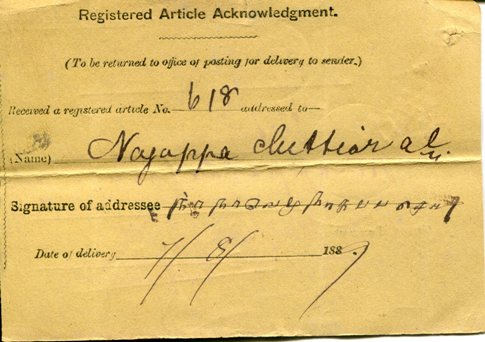 Registered Article Acknowledgment.
(To be returned to office of posting for delivery to sender.)
Received a registered article No. 618 addressed to—
(Name) Nagappa Chettiar
Signature of addressee
Date of delivery 7/8/ 1887